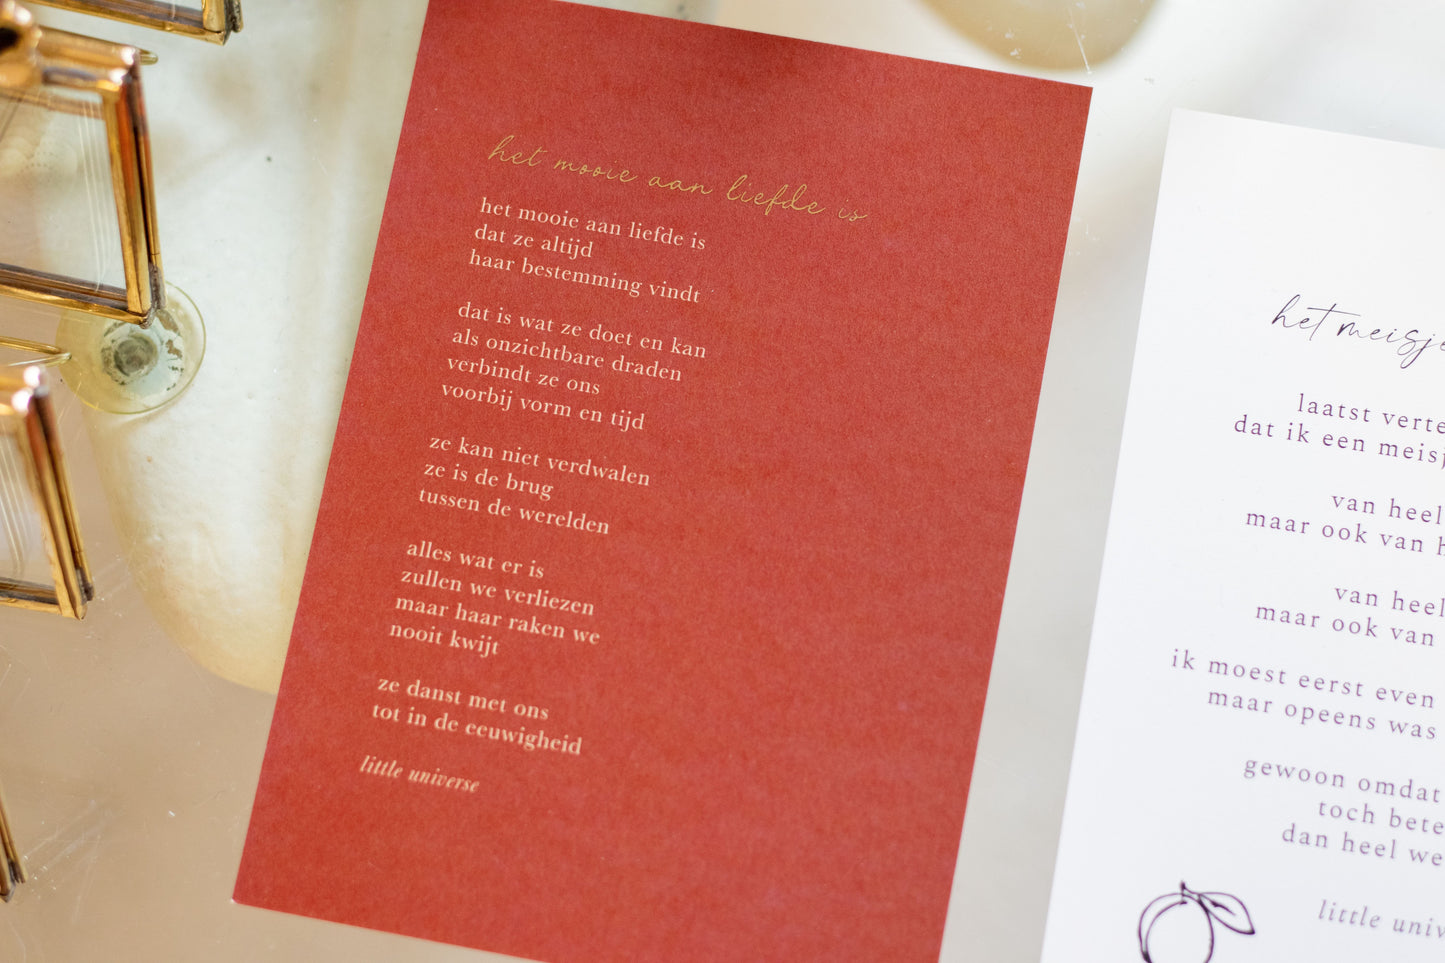 het mooie aan liefde is
het mooie aan liefde is
dat ze altijd
haar bestemming vindt
dat is wat ze doet en kan
als onzichtbare draden
verbindt ze ons
voorbij vorm en tijd
ze kan niet verdwalen
ze is de brug
tussen de werelden
alles wat er is
zullen we verliezen
maar haar raken we
nooit kwijt
ze danst met ons
tot in de eeuwigheid
little universe
het meisje
laatst
dat ik een
van heel
maar ook van
van heel
maar ook van
ik moest eerst even
maar opeens was
gewoon omdat
toch
dan heel
little